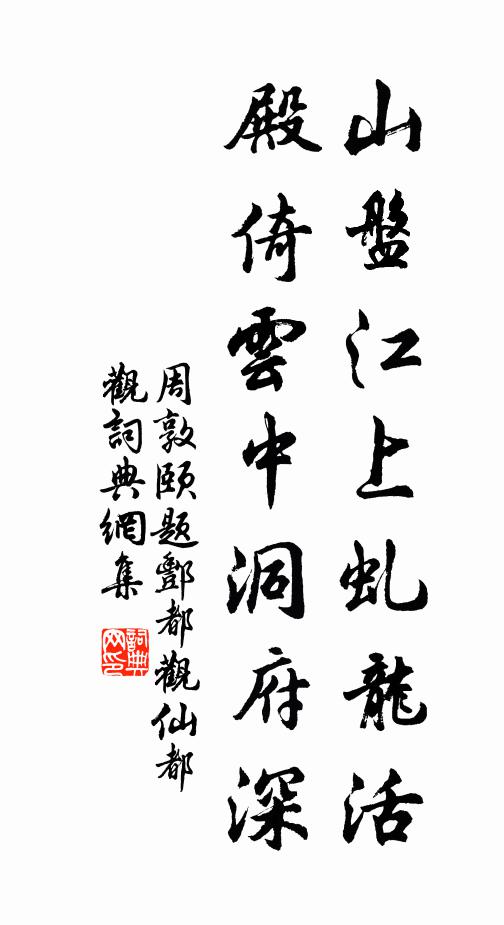 山盤江上虬龍活
殿倚雲中洞府深
周敦頤題酆都觀仙都
觀詞典網集
詞典
網印